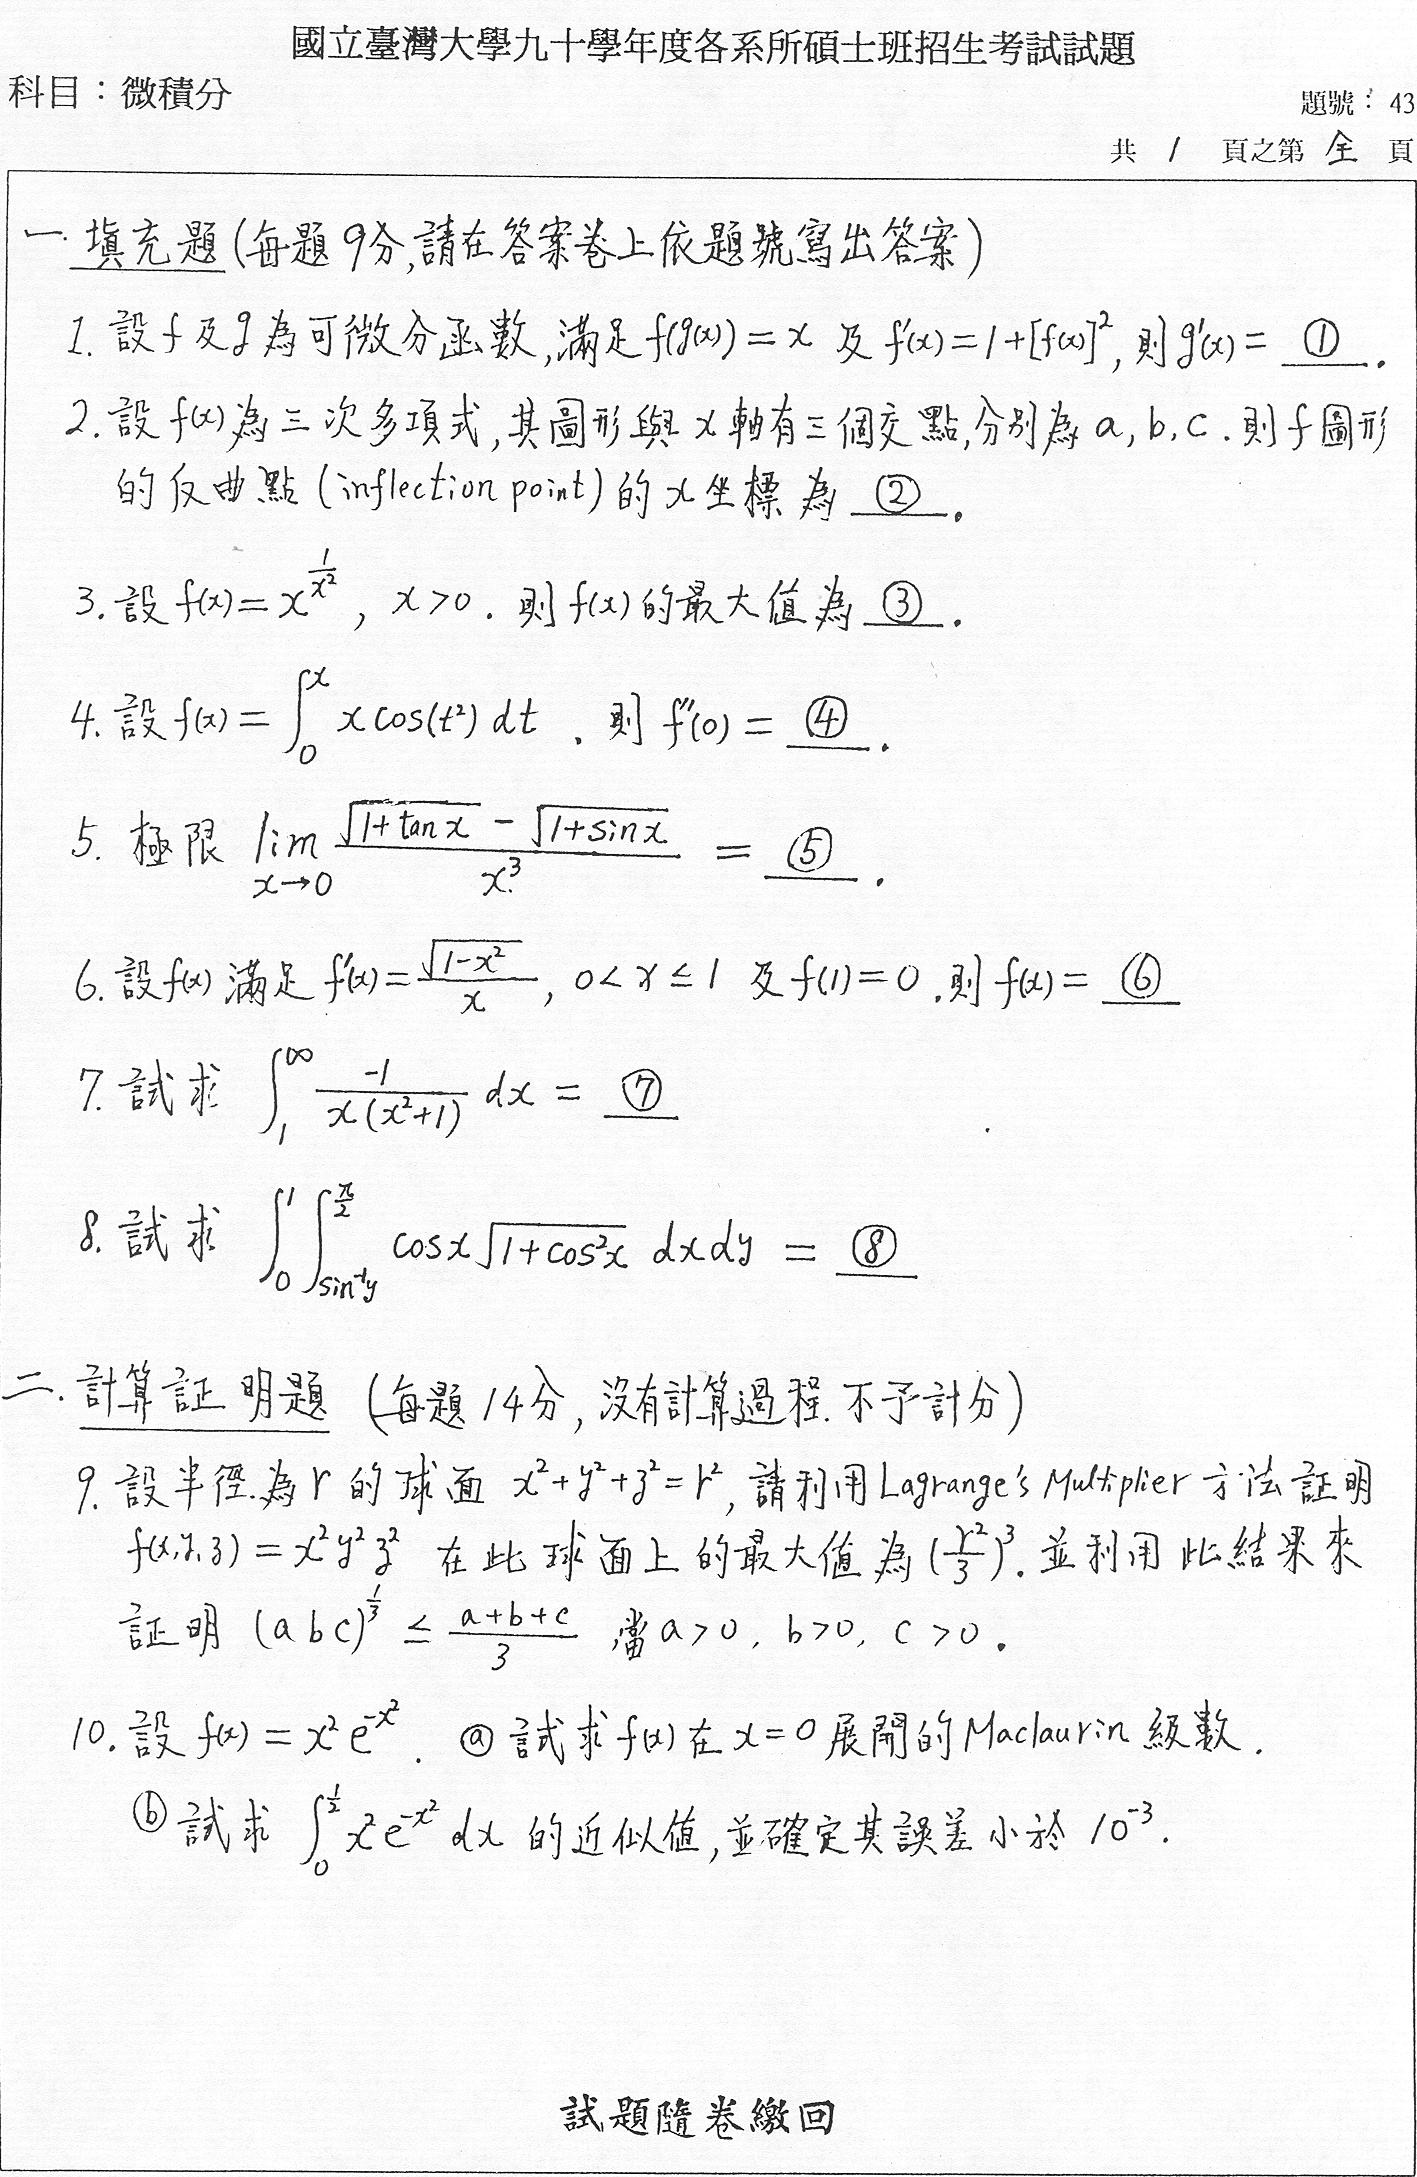 國立臺灣大學九十學年度各系所碩士班招生考試試題
科目：微積分
題號：43
共 1 頁之第 全 頁
一. 填充題 (每題9分,請在答案卷上依題號寫出答案)
1. 設 f 及 g 為可微分函數,滿足 f(g(x)) = x 及 f'(x) = 1+[f(x)]², 則 g'(x) = ① .
2. 設 f(x) 為三次多項式,其圖形與 x 軸有三個交點,分別為 a, b, c . 則 f 圖形
的反曲點 (inflection point) 的 x 坐標為 ② .
3. 設 f(x) = x^(1/x²) , x > 0 . 則 f(x) 的最大值為 ③ .
4. 設 f(x) = ∫₀ˣ x cos(t²) dt . 則 f''(0) = ④ .
5. 極限 lim_(x→0) (√(1+tan x) − √(1+sin x))/x³ = ⑤ .
6. 設 f(x) 滿足 f'(x) = √(1−x²)/x , 0 < x ≤ 1 及 f(1) = 0 . 則 f(x) = ⑥
7. 試求 ∫₁^∞ −1/(x(x²+1)) dx = ⑦
8. 試求 ∫₀¹ ∫_(sin⁻¹y)^(π/2) cos x √(1+cos²x) dx dy = ⑧
二. 計算証明題 (每題14分, 沒有計算過程.不予計分)
9. 設半徑為 r 的球面 x²+y²+z² = r² , 請利用 Lagrange's Multiplier 方法証明
f(x,y,z) = x²y²z² 在此球面上的最大值為 (r²/3)³ . 並利用此結果來
証明 (abc)^(1/3) ≤ (a+b+c)/3 ,當 a > 0 , b > 0, c > 0 .
10. 設 f(x) = x²e^(−x²) . ⓐ 試求 f(x) 在 x = 0 展開的 Maclaurin 級數 .
ⓑ 試求 ∫₀^(1/2) x²e^(−x²) dx 的近似值,並確定其誤差小於 10⁻³ .
試題隨卷繳回